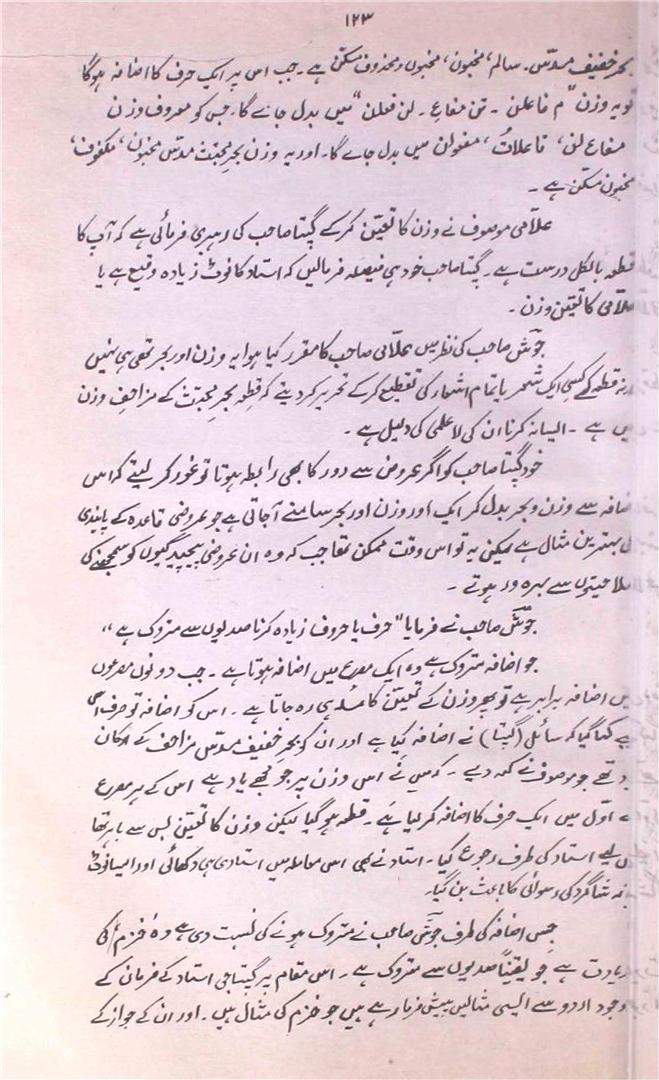 ۱۲۳
بحر خفیف مسدّس۔ سالم، مخبون، مخبون و محذوف ممکن ہے۔ جب اس پر ایک حرف کا اضافہ ہوگا
تو یہ وزن "م فاعلن ۔ تن مفاع ۔ لن فعلن" میں بدل جائے گا۔ جس کو معروف وزن
مفاع لن، فاعلاتُ، مفعولن میں بدل جائے گا۔ اور یہ وزن بحرِ مجتث مسدّس مخبون، مکفوف،
مخبون ممکن ہے۔
علاّمی موصوف نے وزن کا تعیّن کرکے گپتا صاحب کی رہبری فرمائی ہے کہ آپ کا
قطعہ بالکل درست ہے۔ گپتا صاحب خود ہی فیصلہ فرمالیں کہ استاد کا نوٹ زیادہ وقیع ہے یا
علاّمی کا تعیّن وزن۔
جوشؔ صاحب کی نظر میں علاّمی صاحب کا مقرر کیا ہوا یہ وزن اور بحر تھی ہی نہیں
ورنہ قطعہ کے کسی ایک شعر یا تمام اشعار کی تقطیع کرکے تحریر کر دیتے کہ قطعہ بحرِ مجتث کے مزاحف وزن
میں ہے۔ ایسا نہ کرنا ان کی لاعلمی کی دلیل ہے۔
خود گپتا صاحب کو اگر عروض سے دور کا بھی رابطہ ہوتا تو غور کر لیتے کہ اس
اضافہ سے وزن و بحر بدل کر ایک اور وزن اور بحر سامنے آجاتی ہے جو عروضی قاعدہ کے پابندی
کی بہترین مثال ہے لیکن یہ تو اس وقت ممکن تھا جب کہ وہ ان عروضی پیچیدگیوں کو سمجھنے کی
صلاحیتوں سے بہرہ ور ہوتے۔
جوشؔ صاحب نے فرمایا "حرف یا حروف زیادہ کرنا صدیوں سے متروک ہے"
جو اضافہ متروک ہے وہ ایک مصرع میں اضافہ ہوتا ہے۔ جب دونوں مصرعوں
میں اضافہ برابر ہے تو پھر وزن کے تعیّن کا مسئلہ ہی رہ جاتا ہے۔ اس کو اضافہ تو صرف اسی
لیے کہا گیا کہ سائل (گپتا) نے اضافہ کیا ہے اور ان کو بحرِ خفیف مسدّس مزاحف کے ارکان
یاد تھے جو موصوف نے کہہ دیے۔ کہ میں نے اس وزن پر جو مجھے یاد ہے اس کے ہر مصرع
کے اوّل میں ایک حرف کا اضافہ کر لیا ہے۔ قطعہ ہوگیا لیکن وزن کا تعیّن بس سے باہر تھا
اس لیے استاد کی طرف رجوع کیا۔ استاد نے بھی اس معاملہ میں استادی ہی دکھائی اور ایسا نوٹ
جو شاگرد کی رسوائی کا باعث بن گیا۔
جس اضافہ کی طرف جوشؔ صاحب نے متروک ہونے کی نسبت دی ہے وہ 'خزم' کی
زیادت ہے جو یقیناً صدیوں سے متروک ہے۔ اس مقام پر گپتا جی استاد کے فرمان کے
باوجود اردو سے ایسی مثالیں پیش فرما رہے ہیں جو خزم کی مثال ہیں۔ اور ان کے جواز کے